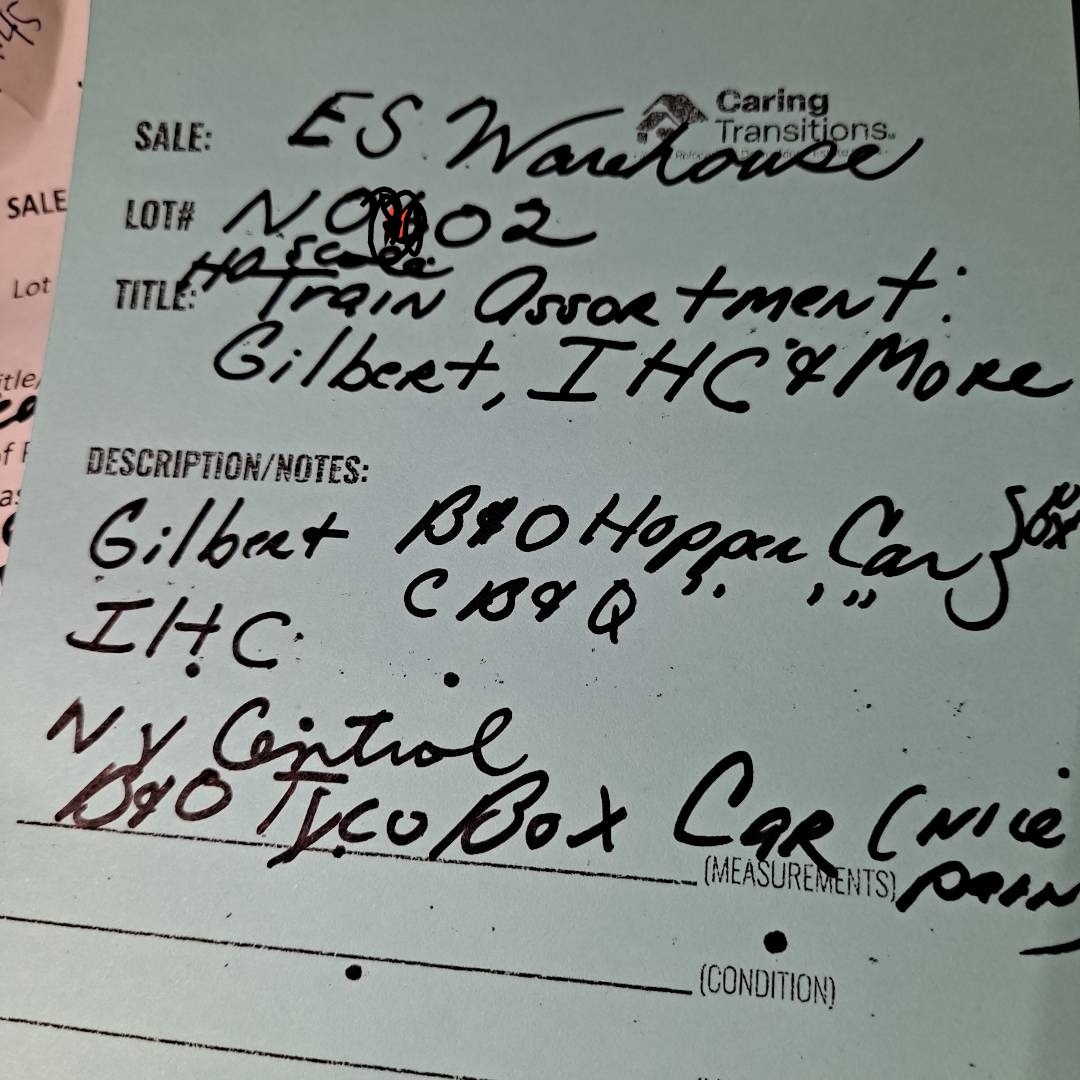 Caring
Transitions
SALE: ES Warehouse
LOT# NO 02
HO Scale
TITLE: Train Assortment:
Gilbert, IHC & More
DESCRIPTION/NOTES:
Gilbert B&O Hopper Car } box
CB&Q " " "
IHC
NY Central
B&O Tyco Box Car (Nice
(MEASUREMENTS)
(CONDITION)
SALE
Lot